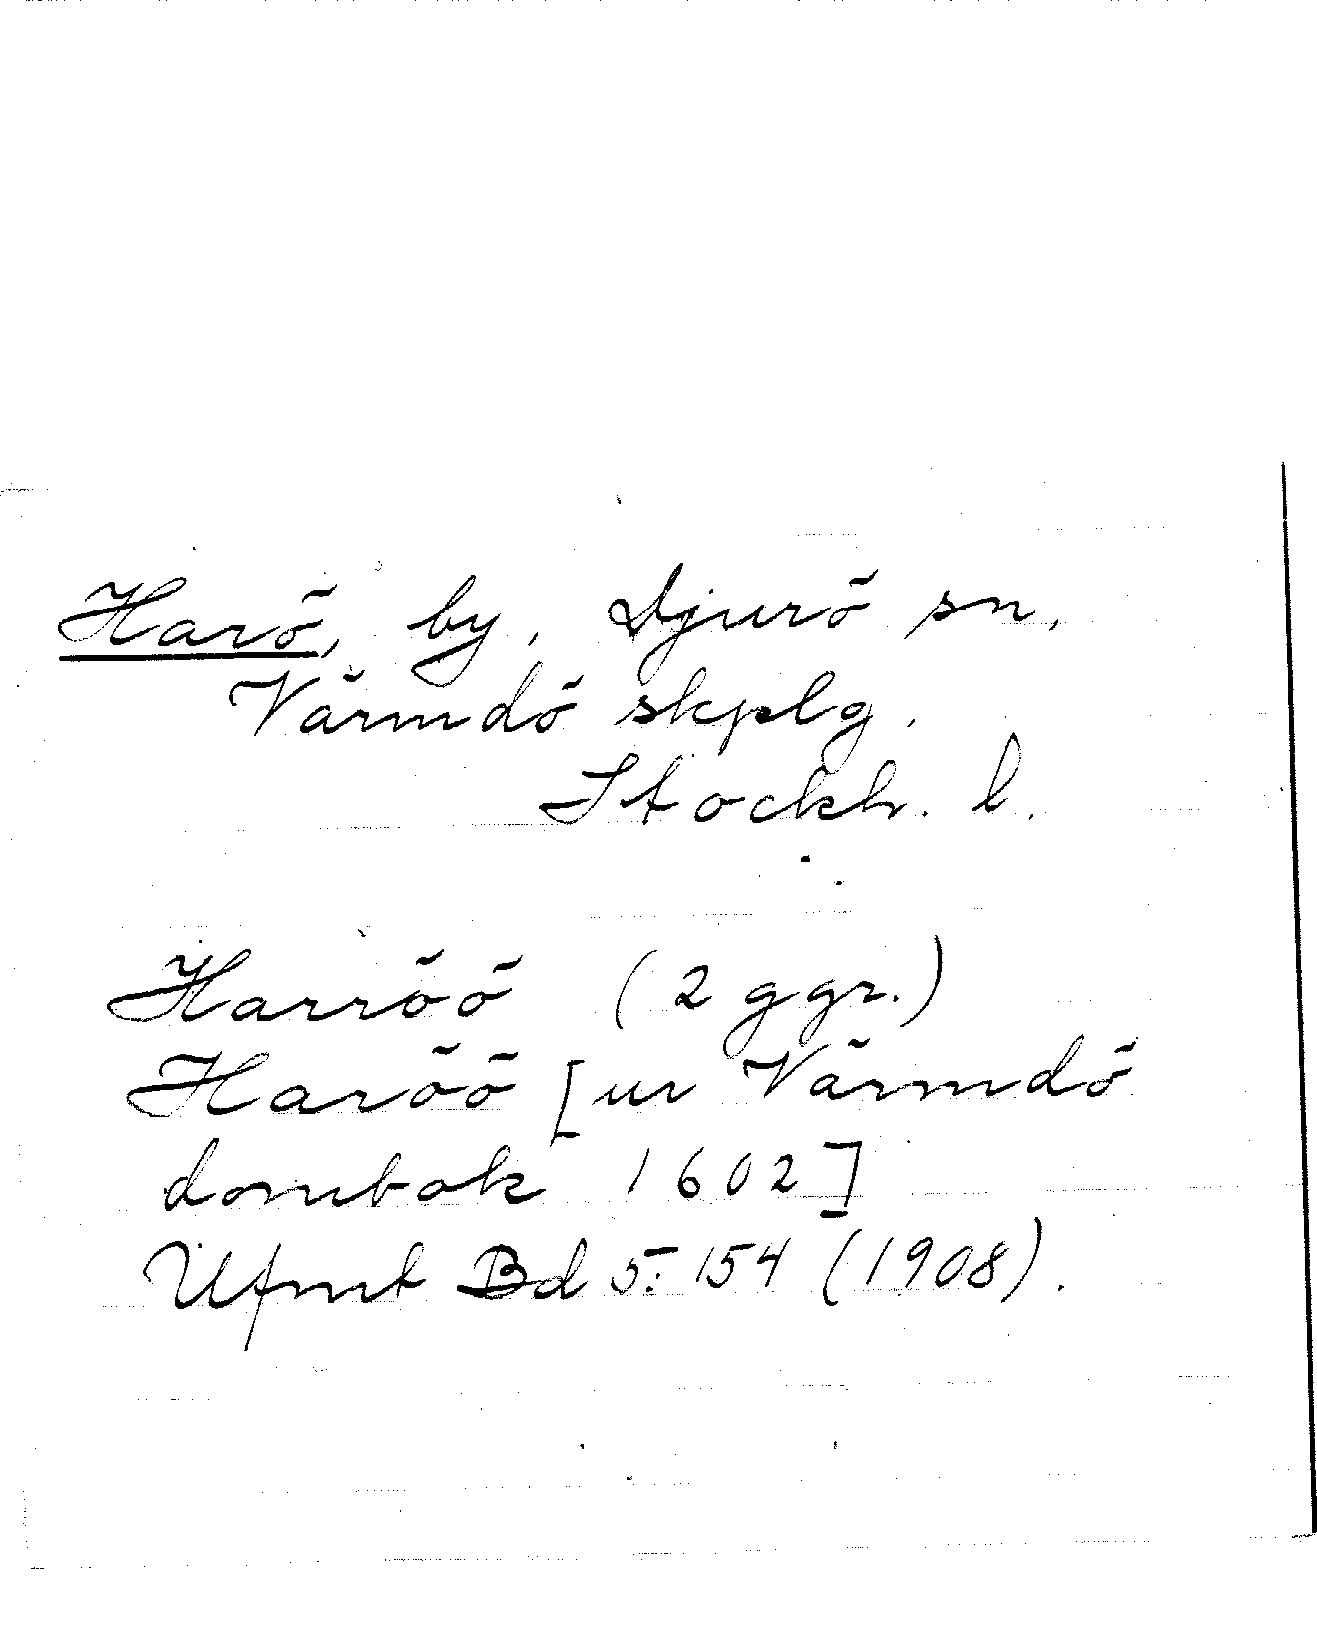 Harö, by, Djurö sn,
Värmdö skplg.
Stockh. l.
Harröö (2 ggr.)
Haröö [ur Värmdö
dombok 1602]
Ufmt Bd 5: 154 (1908).